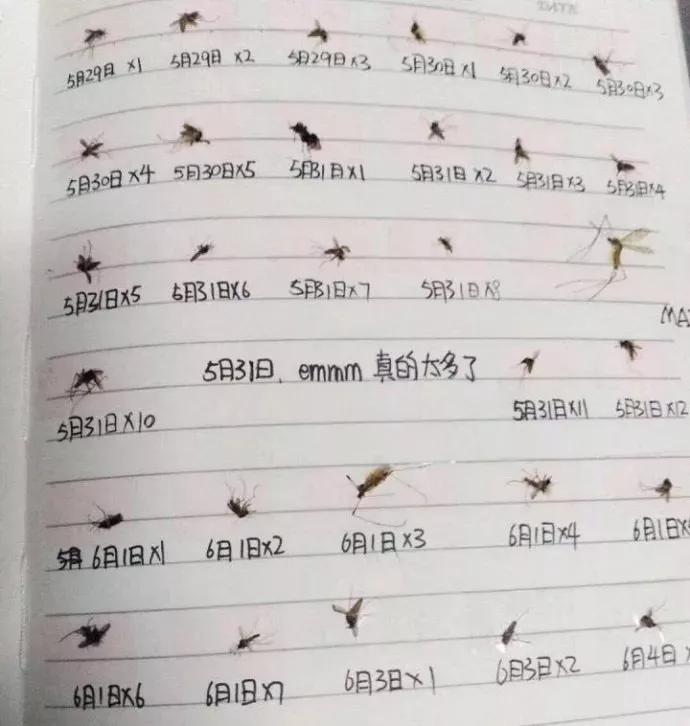 DATE
5月29日 x1 5月29日 x2 5月29日x3 5月30日x1 5月30日x2 5月30日x3
5月30日x4 5月30日x5 5月31日x1 5月31日x2 5月31日x3 5月31日x4
5月31日x5 5月31日x6 5月31日x7 5月31日x8
MAX
5月31日x10 5月31日、emmm 真的太多了 5月31日x11 5月31日x12
6月1日x1 6月1日x2 6月1日x3 6月1日x4 6月1日x
6月1日x6 6月1日x7 6月3日x1 6月3日x2 6月4日x